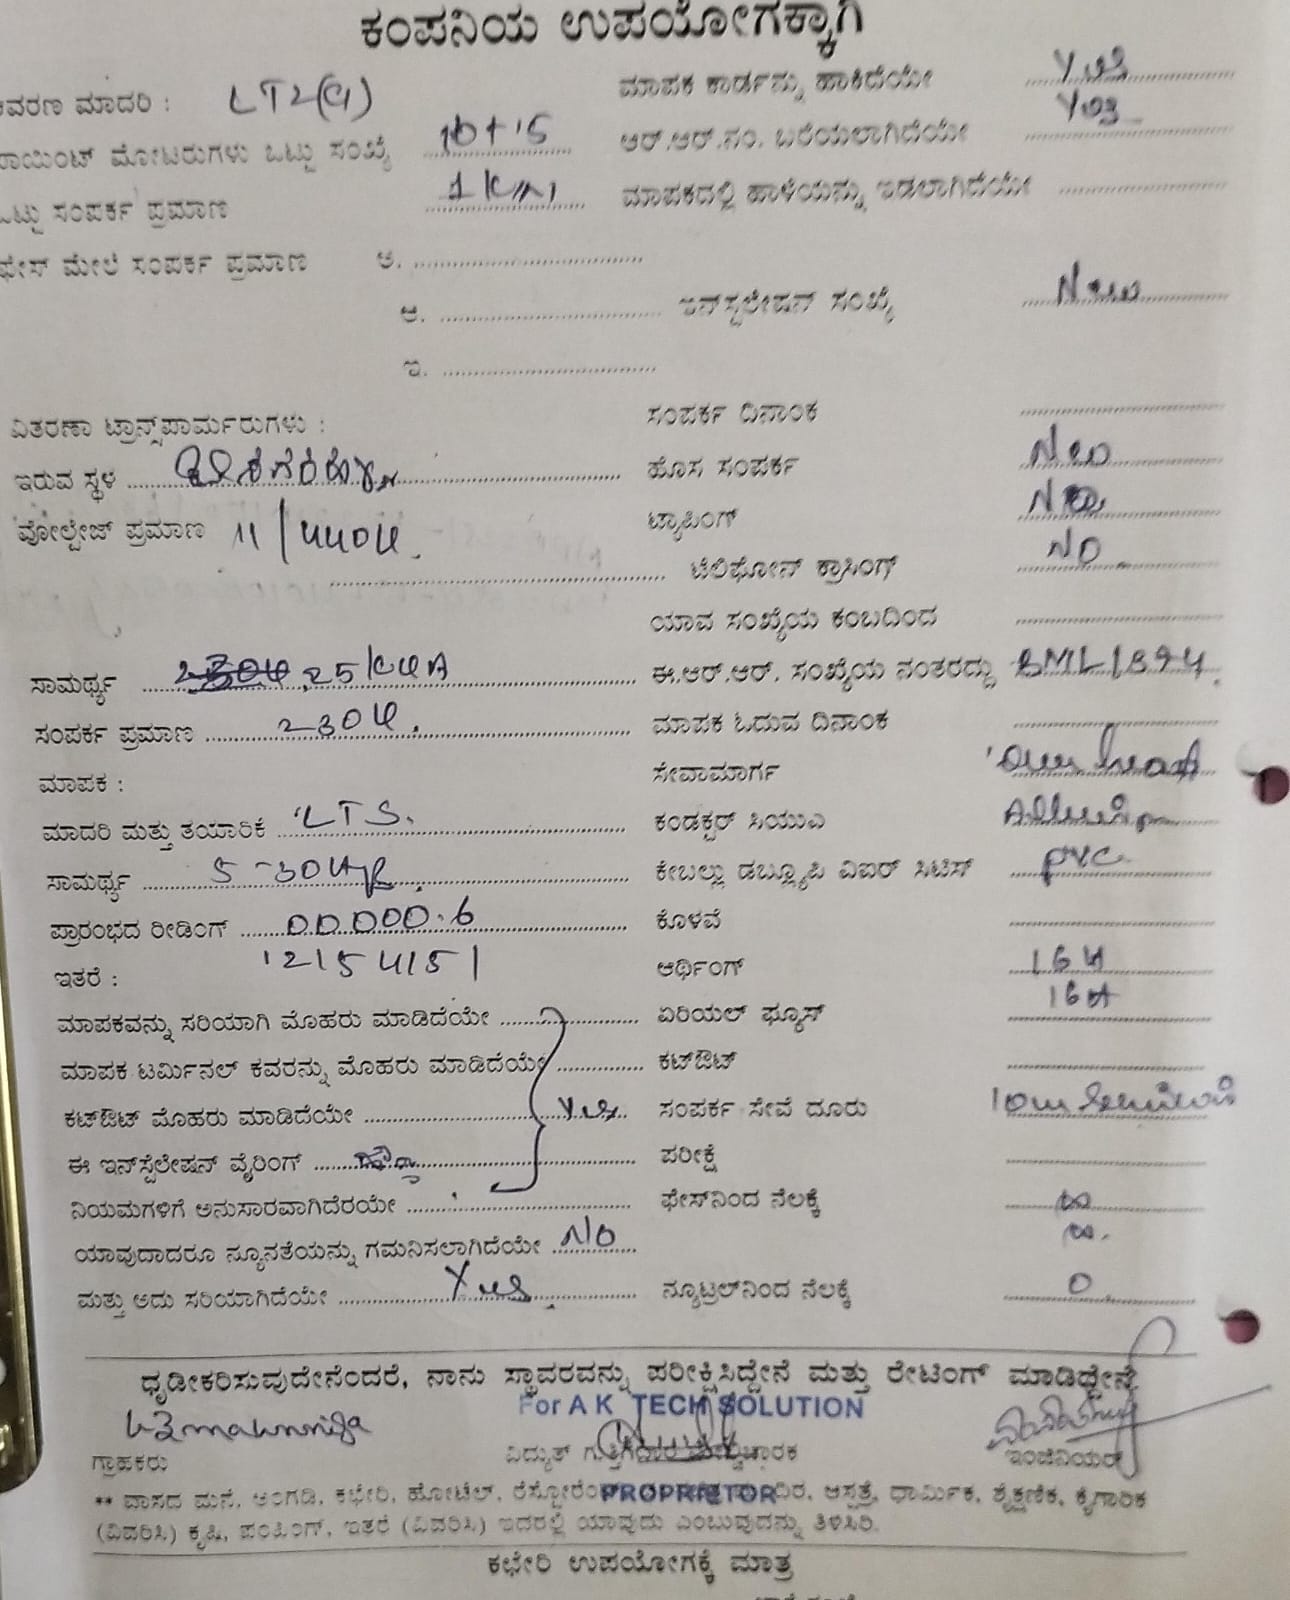 ಕಂಪನಿಯ ಉಪಯೋಗಕ್ಕಾಗಿ
ಆವರಣ ಮಾದರಿ : LT2(a) ಮಾಪಕ ಕಾರ್ಡನ್ನು ಹಾಕಿದೆಯೇ Yes
ಪಾಯಿಂಟ್ ಮೋಟರುಗಳು ಒಟ್ಟು ಸಂಖ್ಯೆ 10+15 ಆರ್.ಆರ್.ನಂ. ಬರೆಯಲಾಗಿದೆಯೇ Yes
ಒಟ್ಟು ಸಂಪರ್ಕ ಪ್ರಮಾಣ 1 ಮಾಪಕದಲ್ಲಿ ಹಾಳೆಯನ್ನು ಇಡಲಾಗಿದೆಯೇ
ಫೇಸ್ ಮೇಲೆ ಸಂಪರ್ಕ ಪ್ರಮಾಣ ಅ.
ಆ. ಇನ್‌ಸ್ಟಲೇಷನ್ ಸಂಖ್ಯೆ New
ಇ.
ವಿತರಣಾ ಟ್ರಾನ್ಸ್‌ಫಾರ್ಮರುಗಳು : ಸಂಪರ್ಕ ದಿನಾಂಕ
ಇರುವ ಸ್ಥಳ ಹೊಸ ಸಂಪರ್ಕ New
ವೋಲ್ಟೇಜ್ ಪ್ರಮಾಣ 11/440V. ಟ್ಯಾಪಿಂಗ್ No
ಟೆಲಿಫೋನ್ ಕ್ರಾಸಿಂಗ್ No
ಯಾವ ಸಂಖ್ಯೆಯ ಕಂಬದಿಂದ
ಸಾಮರ್ಥ್ಯ 25 KVA ಈ.ಆರ್.ಆರ್. ಸಂಖ್ಯೆಯ ನಂತರದ್ದು
ಸಂಪರ್ಕ ಪ್ರಮಾಣ 230V. ಮಾಪಕ ಓದುವ ದಿನಾಂಕ
ಮಾಪಕ : ಸೇವಾಮಾರ್ಗ Over head
ಮಾದರಿ ಮತ್ತು ತಯಾರಿಕೆ LTS. ಕಂಡಕ್ಟರ್ ಸಿಯುಎ
ಸಾಮರ್ಥ್ಯ 5-30 ಕೇಬಲ್ಲು ಡಬ್ಲ್ಯೂಪಿ ವಿಐಆರ್ ಸಿಟಿಸ್ PVC
ಪ್ರಾರಂಭದ ರೀಡಿಂಗ್ 00000.6 ಕೊಳವೆ
ಇತರೆ : 12154151 ಆರ್ಥಿಂಗ್
ಮಾಪಕವನ್ನು ಸರಿಯಾಗಿ ಮೊಹರು ಮಾಡಿದೆಯೇ ಏರಿಯಲ್ ಫ್ಯೂಸ್
ಮಾಪಕ ಟರ್ಮಿನಲ್ ಕವರನ್ನು ಮೊಹರು ಮಾಡಿದೆಯೇ ಕಟ್‌ಔಟ್
ಕಟ್‌ಔಟ್ ಮೊಹರು ಮಾಡಿದೆಯೇ Yes ಸಂಪರ್ಕ ಸೇವೆ ದೂರು
ಈ ಇನ್‌ಸ್ಟೆಲೇಷನ್ ವೈರಿಂಗ್ ಪರೀಕ್ಷೆ
ನಿಯಮಗಳಿಗೆ ಅನುಸಾರವಾಗಿದೆರಯೇ ಫೇಸ್‌ನಿಂದ ನೆಲಕ್ಕೆ ∞
ಯಾವುದಾದರೂ ನ್ಯೂನತೆಯನ್ನು ಗಮನಿಸಲಾಗಿದೆಯೇ No ∞.
ಮತ್ತು ಅದು ಸರಿಯಾಗಿದೆಯೇ Yes ನ್ಯೂಟ್ರಲ್‌ನಿಂದ ನೆಲಕ್ಕೆ 0
ಧೃಡೀಕರಿಸುವುದೇನೆಂದರೆ, ನಾನು ಸ್ಥಾವರವನ್ನು ಪರೀಕ್ಷಿಸಿದ್ದೇನೆ ಮತ್ತು ರೇಟಿಂಗ್ ಮಾಡಿದ್ದೇನೆ
For A K TECH SOLUTION
ಗ್ರಾಹಕರು ವಿದ್ಯುತ್ ಗುತ್ತಿಗೆದಾರ ಮೇಲ್ವಿಚಾರಕ ಇಂಜಿನಿಯರ್
PROPRIETOR
** ವಾಸದ ಮನೆ, ಅಂಗಡಿ, ಕಛೇರಿ, ಹೋಟೆಲ್, ಆಸ್ಪತ್ರೆ, ಧಾರ್ಮಿಕ, ಶೈಕ್ಷಣಿಕ, ಕೈಗಾರಿಕ
(ವಿವರಿಸಿ) ಕೃಷಿ, ಪಂಪಿಂಗ್, ಇತರೆ (ವಿವರಿಸಿ) ಇದರಲ್ಲಿ ಯಾವುದು ಎಂಬುವುದನ್ನು ತಿಳಿಸಿರಿ.
ಕಛೇರಿ ಉಪಯೋಗಕ್ಕೆ ಮಾತ್ರ